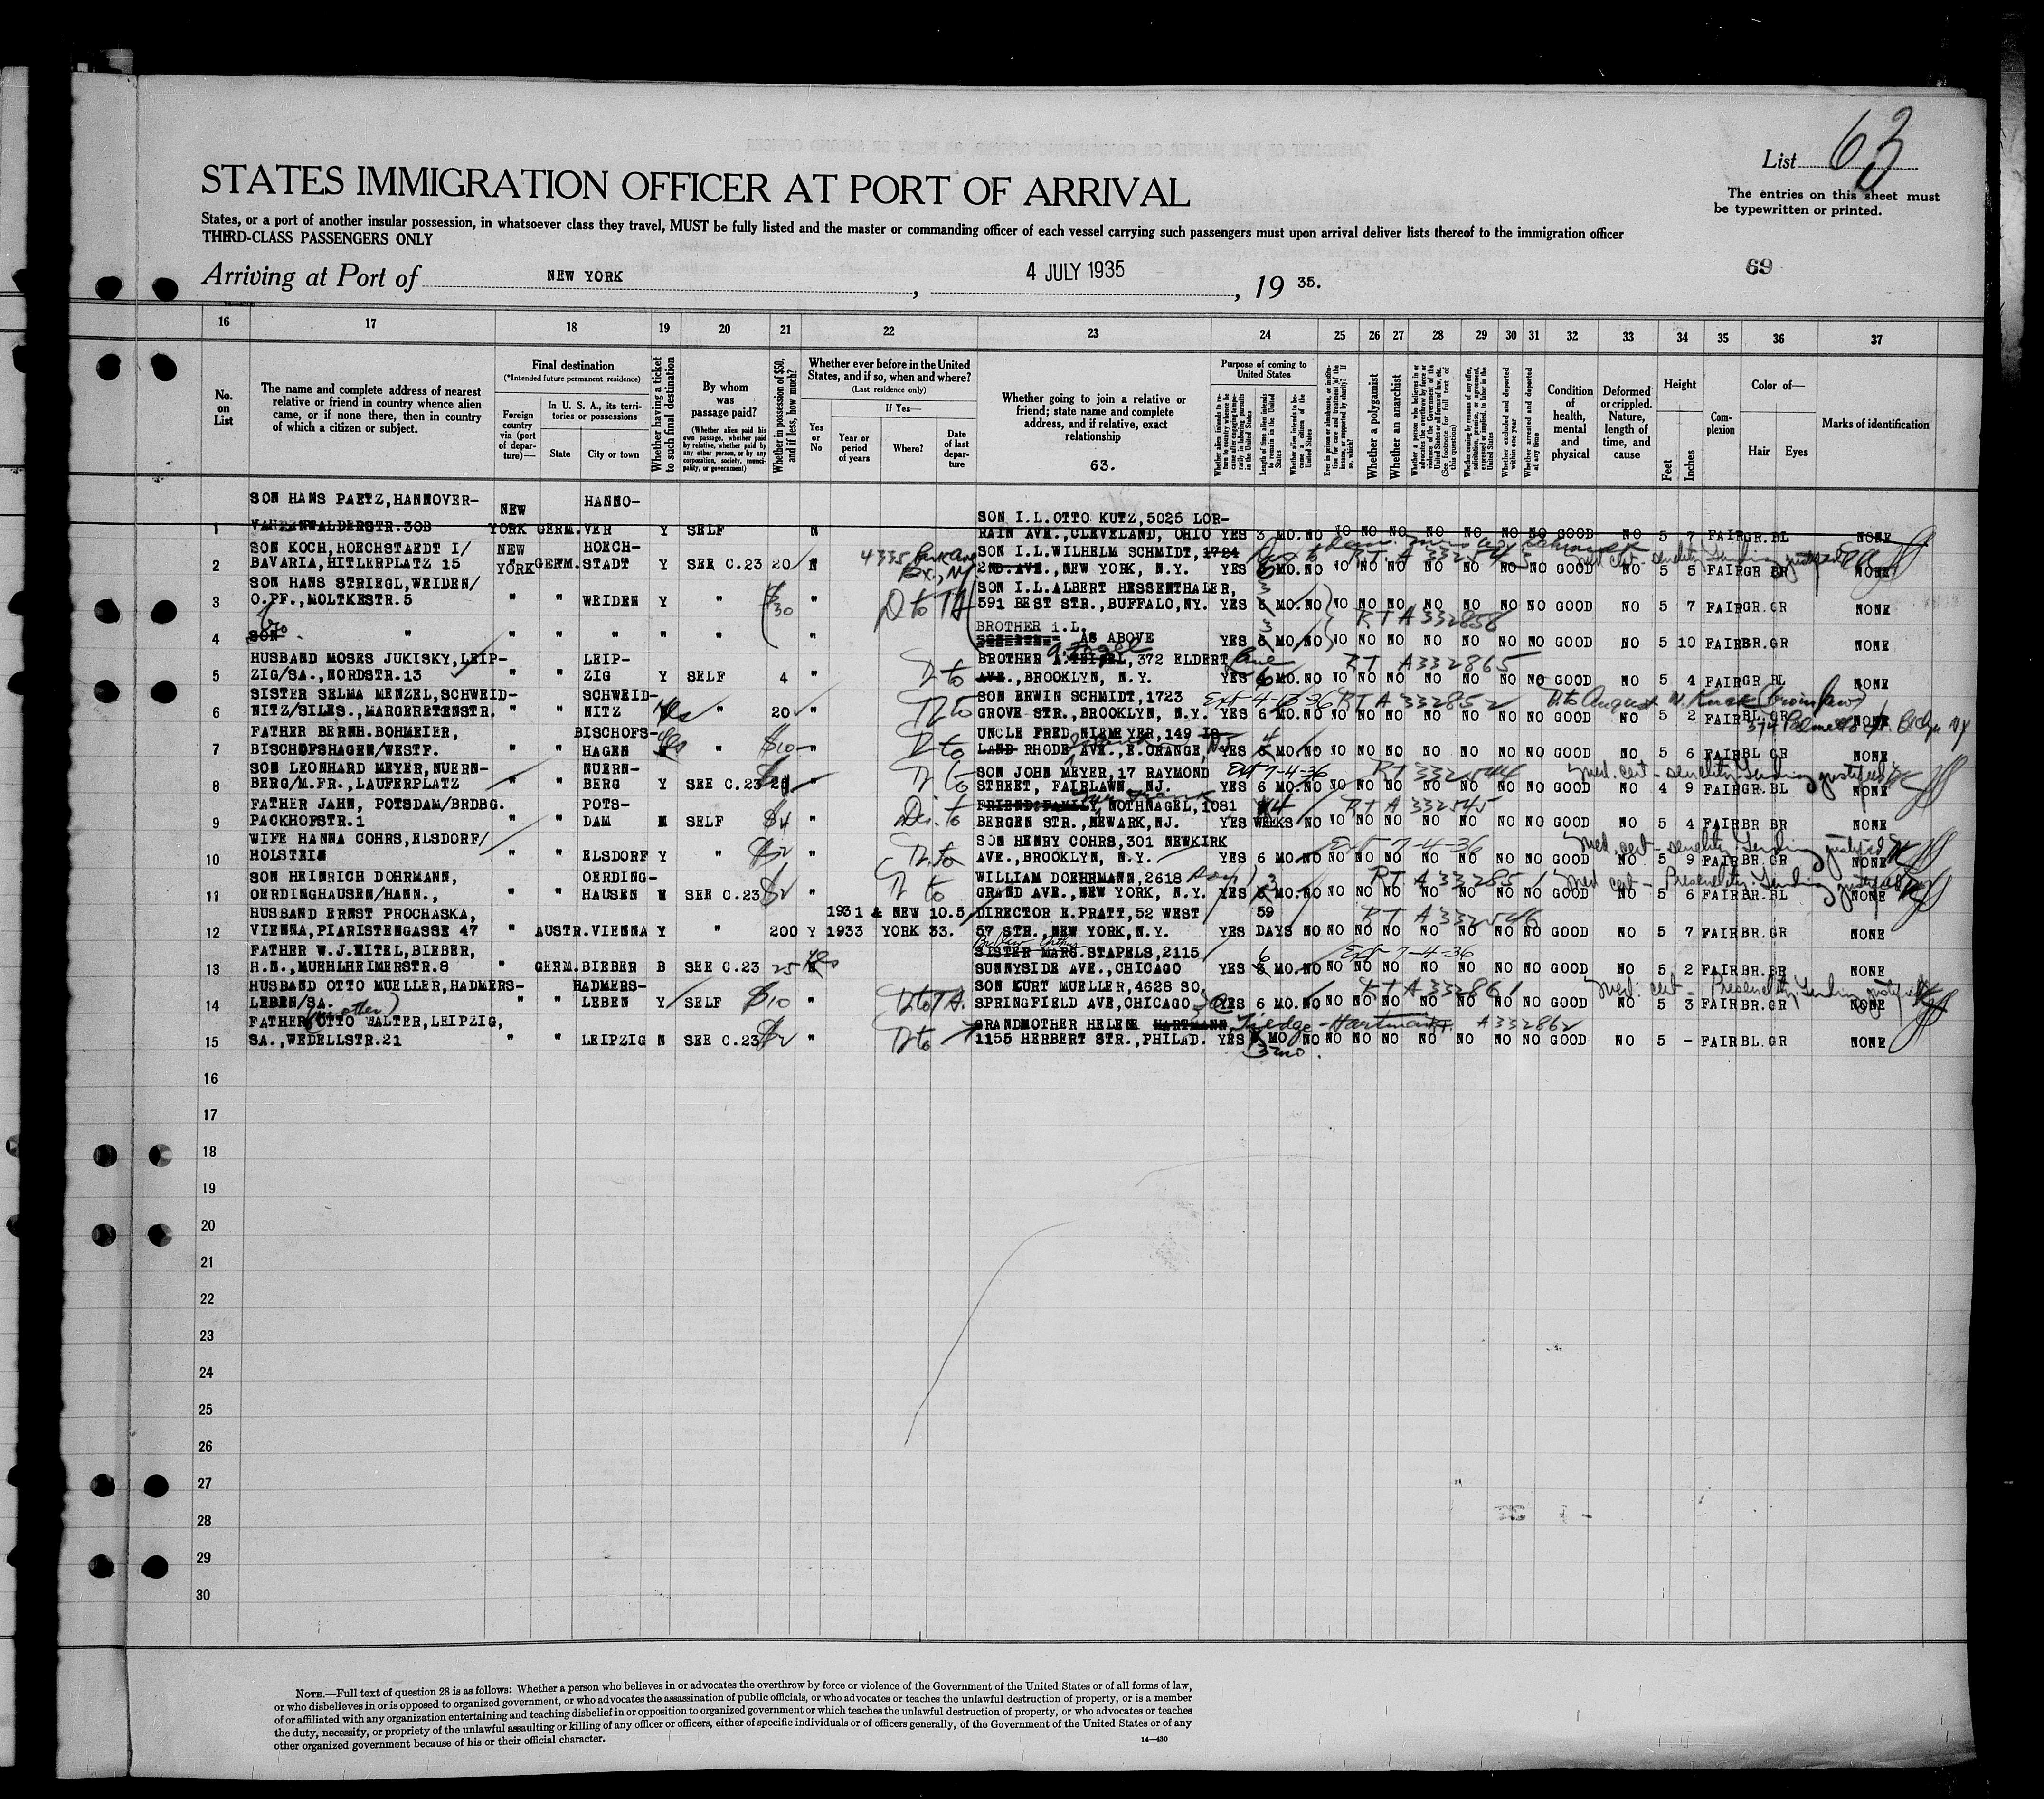 List 63
STATES IMMIGRATION OFFICER AT PORT OF ARRIVAL
The entries on this sheet must
be typewritten or printed.
States, or a port of another insular possession, in whatsoever class they travel, MUST be fully listed and the master or commanding officer of each vessel carrying such passengers must upon arrival deliver lists thereof to the immigration officer
THIRD-CLASS PASSENGERS ONLY
69
Arriving at Port of NEW YORK, 4 JULY 1935, 19 35.
16 17 18 19 20 21 22 23 24 25 26 27 28 29 30 31 32 33 34 35 36 37
No. on List
The name and complete address of nearest relative or friend in country whence alien came, or if none there, then in country of which a citizen or subject.
Final destination
(*Intended future permanent residence)
Foreign country via (port of departure)—
In U. S. A., its territories or possessions
State
City or town
Whether having a ticket to such final destination
By whom was passage paid?
(Whether alien paid his own passage, whether paid by relative, whether paid by any other person, or by any corporation, society, municipality, or government)
Whether in possession of $50, and if less, how much?
Whether ever before in the United States, and if so, when and where?
(Last residence only)
Yes or No
If Yes—
Year or period of years
Where?
Date of last departure
Whether going to join a relative or friend; state name and complete address, and if relative, exact relationship
63.
Purpose of coming to United States
Length of time alien intends to remain in the United States
Whether alien intends to become a citizen of the United States
Whether a polygamist
Whether an anarchist
Whether excluded and deported within one year
Whether arrested and deported at any time
Condition of health, mental and physical
Deformed or crippled. Nature, length of time, and cause
Height
Feet
Inches
Complexion
Color of—
Hair
Eyes
Marks of identification
SON HANS PAETZ,HANNOVER- NEW HANNO- SON I.L.OTTO KUTZ,5025 LOR-
1 30B YORK GERM. VER Y SELF N RAIN AVE.,CLEVELAND, OHIO YES 3 MO. NO NO NO NO NO NO NO NO GOOD NO 5 7 FAIR GR. BL NONE
SON KOCH,HOECHSTAEDT I/ NEW HOECH- 4335 Park Ave SON I.L.WILHELM SCHMIDT, 1724 RT A 332543
2 BAVARIA,HITLERPLATZ 15 YORK GERM. STADT Y SEE C.23 20 N Bx., NY 2ND.AVE.,NEW YORK, N.Y. YES 6 MO. NO NO NO NO NO NO NO NO GOOD NO 5 5 FAIR GR BR NONE
SON HANS STRIEGL,WEIDEN/ SON I.L.ALBERT HESSENTHALER, 3
3 O.PF.,MOLTKESTR.5 " " WEIDEN Y " $30 " D to TA 591 BEST STR.,BUFFALO,NY. YES 6 MO. NO NO NO NO NO NO NO NO GOOD NO 5 7 FAIR GR. GR NONE
Bro BROTHER i.L. 3 RT A 332858
4 SON " " " " " " " AS ABOVE YES 6 MO. NO NO NO NO NO NO NO NO GOOD NO 5 10 FAIR BR. GR NONE
HUSBAND MOSES JUKISKY,LEIP- LEIP- BROTHER 372 ELDERT Lane RT A332865
5 ZIG/SA.,NORDSTR.13 " " ZIG Y SELF 4 " D to AVE.,BROOKLYN, N.Y. YES 6 MO. NO NO NO NO NO NO NO NO GOOD NO 5 4 FAIR GR BL NONE
SISTER SELMA MENZEL,SCHWEID- SCHWEID- SON ERWIN SCHMIDT,1723 Ext 4-13-36 RT A 332852 D to August W. (Bro in law)
6 NITZ/SILES.,MARGERETENSTR. " " NITZ Yes " 20 " D to GROVE STR., BROOKLYN, N.Y. YES 6 MO. NO NO NO NO NO NO NO NO GOOD NO 5 2 FAIR BL. GR NONE
FATHER BERNH.BOHMEIER, BISCHOFS- UNCLE FRED NIEMEYER,149 IS-
7 BISCHOFSHAGEN/WESTF. " " HAGEN Yes " $10 " D to LAND RHODE AVE., E.ORANGE, NJ YES MO. NO NO NO NO NO NO NO NO GOOD NO 5 6 FAIR BL GR NONE
SON LEONHARD MEYER,NUERN- NUERN- SON JOHN MEYER,17 RAYMOND Ext 7-4-36 RT 332544 med. cert - senility. Landing justified
8 BERG/M.FR.,LAUFERPLATZ " " BERG Y SEE C.23 " D to STREET, FAIRLAWN, NJ. YES 6 MO. NO NO NO NO NO NO NO NO GOOD NO 4 9 FAIR GR. BL NONE
FATHER JAHN, POTSDAM/BRDBG. POTS- FRIEND:FAMILY, NOTHNAGEL,1081 4 RT A 332545
9 PACKHOFSTR.1 " " DAM N SELF $4 " D to BERGEN STR.,NEWARK,NJ. YES WEEKS NO NO NO NO NO NO NO NO GOOD NO 5 4 FAIR BR BR NONE
WIFE HANNA COHRS,ELSDORF/ SON HENRY COHRS,301 NEWKIRK Ext 7-4-36 med. cert - senility. Landing justified
10 HOLSTEIN " " ELSDORF Y " " D to AVE.,BROOKLYN, N.Y. YES 6 MO. NO NO NO NO NO NO NO NO GOOD NO 5 9 FAIR BR. GR NONE
SON HEINRICH DOHRMANN, OERDING- WILLIAM DOEHRMANN,2618 3 RT A 332851 med cert - Presenility. Landing justified
11 OERDINGHAUSEN/HANN., " " HAUSEN N SEE C.23 $2 " D to GRAND AVE., NEW YORK, N.Y. YES MO. NO NO NO NO NO NO NO NO GOOD NO 5 6 FAIR BR. BL NONE
HUSBAND ERNST PROCHASKA, 1931 & NEW 10.5 DIRECTOR E.PRATT,52 WEST 59 RT A 332546
12 VIENNA,PIARISTENGASSE 47 " AUSTR. VIENNA Y " 200 Y 1933 YORK 33. 57 STR.,NEW YORK,N.Y. YES DAYS NO NO NO NO NO NO NO NO GOOD NO 5 7 FAIR BR. GR NONE
FATHER W.J.EITEL,BIEBER, SISTER MARG.STAPELS,2115 6 Ext 7-4-36
13 H.N.,MUEHLHEIMERSTR.8 " GERM. BIEBER B SEE C.23 25 Yes SUNNYSIDE AVE.,CHICAGO YES MO. NO NO NO NO NO NO NO NO GOOD NO 5 2 FAIR BR. BR NONE
HUSBAND OTTO MUELLER,HADMERS- HADMERS- SON KURT MUELLER,4628 SO. RT A 332861 med. cert - Presenility. Landing justified
14 LEBEN/SA. " " LEBEN Y SELF $10 " D to TA. SPRINGFIELD AVE,CHICAGO YES 6 MO. NO NO NO NO NO NO NO NO GOOD NO 5 3 FAIR BR. GR NONE
(mother)
FATHER OTTO WALTER,LEIPZIG, GRANDMOTHER HELENE HARTMANN Tiedge-Hartmann A 332862
15 SA.,WEDELLSTR.21 " " LEIPZIG N SEE C.23 $2 " D to 1155 HERBERT STR.,PHILAD. YES MO NO NO NO NO NO NO NO NO GOOD NO 5 - FAIR BL. GR NONE
3 mo.
16
17
18
19
20
21
22
23
24
25
26
27
28
29
30
NOTE.—Full text of question 28 is as follows: Whether a person who believes in or advocates the overthrow by force or violence of the Government of the United States or of all forms of law,
or who disbelieves in or is opposed to organized government, or who advocates the assassination of public officials, or who advocates or teaches the unlawful destruction of property, or is a member
of or affiliated with any organization entertaining and teaching disbelief in or opposition to organized government or which teaches the unlawful destruction of property, or who advocates or teaches
the duty, necessity, or propriety of the unlawful assaulting or killing of any officer or officers, either of specific individuals or of officers generally, of the Government of the United States or of any
other organized government because of his or their official character.
14—430